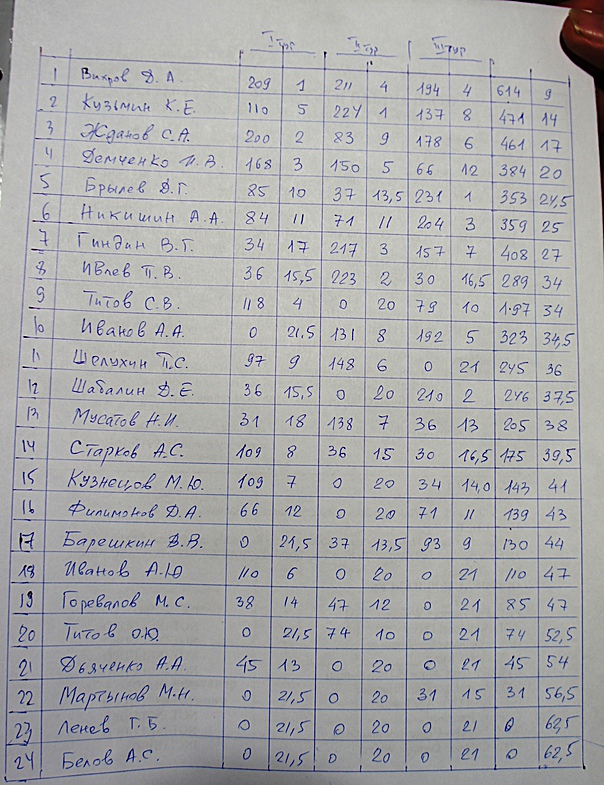 I тур II тур III тур
1 Вихров Д.А. 209 1 211 4 194 4 614 9
2 Кузьмин К.Е. 110 5 224 1 137 8 471 14
3 Жданов С.А. 200 2 83 9 178 6 461 17
4 Демченко И.В. 168 3 150 5 66 12 384 20
5 Брылев Д.Г. 85 10 37 13,5 231 1 353 24,5
6 Никишин А.А. 84 11 71 11 204 3 359 25
7 Гиндин В.Г. 34 17 217 3 157 7 408 27
8 Ивлев П.В. 36 15,5 223 2 30 16,5 289 34
9 Титов С.В. 118 4 0 20 79 10 197 34
10 Иванов А.А. 0 21,5 131 8 192 5 323 34,5
11 Шелухин П.С. 97 9 148 6 0 21 245 36
12 Шабалин Д.Е. 36 15,5 0 20 210 2 246 37,5
13 Мусатов Н.И. 31 18 138 7 36 13 205 38
14 Старков А.С. 109 8 36 15 30 16,5 175 39,5
15 Кузнецов М.Ю. 109 7 0 20 34 14,0 143 41
16 Филимонов Д.А. 66 12 0 20 71 11 139 43
17 Барешкин В.В. 0 21,5 37 13,5 93 9 130 44
18 Иванов А.Ю 110 6 0 20 0 21 110 47
19 Горевалов М.С. 38 14 47 12 0 21 85 47
20 Титов О.Ю. 0 21,5 74 10 0 21 74 52,5
21 Дьяченко А.А. 45 13 0 20 0 21 45 54
22 Мартынов М.Н. 0 21,5 0 20 31 15 31 56,5
23 Ленев Г.Б. 0 21,5 0 20 0 21 0 62,5
24 Белов А.С. 0 21,5 0 20 0 21 0 62,5